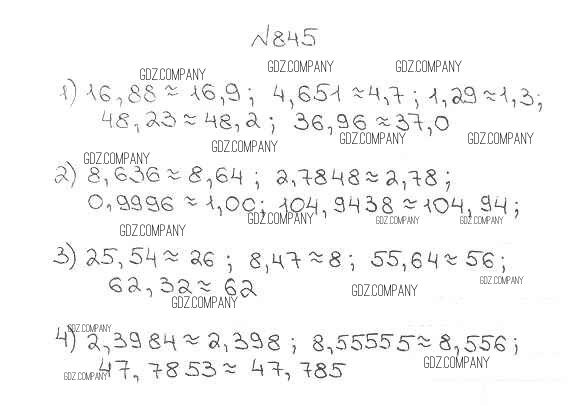 №845
GDZ.COMPANY GDZ.COMPANY GDZ.COMPANY
1) 16,88 ≈ 16,9; 4,651 ≈ 4,7; 1,29 ≈ 1,3;
48,23 ≈ 48,2; 36,96 ≈ 37,0
GDZ.COMPANY GDZ.COMPANY GDZ.COMPANY
GDZ.COMPANY
2) 8,636 ≈ 8,64; 2,7848 ≈ 2,78;
0,9996 ≈ 1,00; 104,9438 ≈ 104,94;
GDZ.COMPANY GDZ.COMPANY GDZ.COMPANY
GDZ.COMPANY
3) 25,54 ≈ 26; 8,47 ≈ 8; 55,64 ≈ 56;
GDZ.COMPANY
62,32 ≈ 62
GDZ.COMPANY GDZ.COMPANY
GDZ.COMPANY
4) 2,3984 ≈ 2,398; 8,55555 ≈ 8,556;
GDZ.COMPANY
47,7853 ≈ 47,785
GDZ.COMPANY